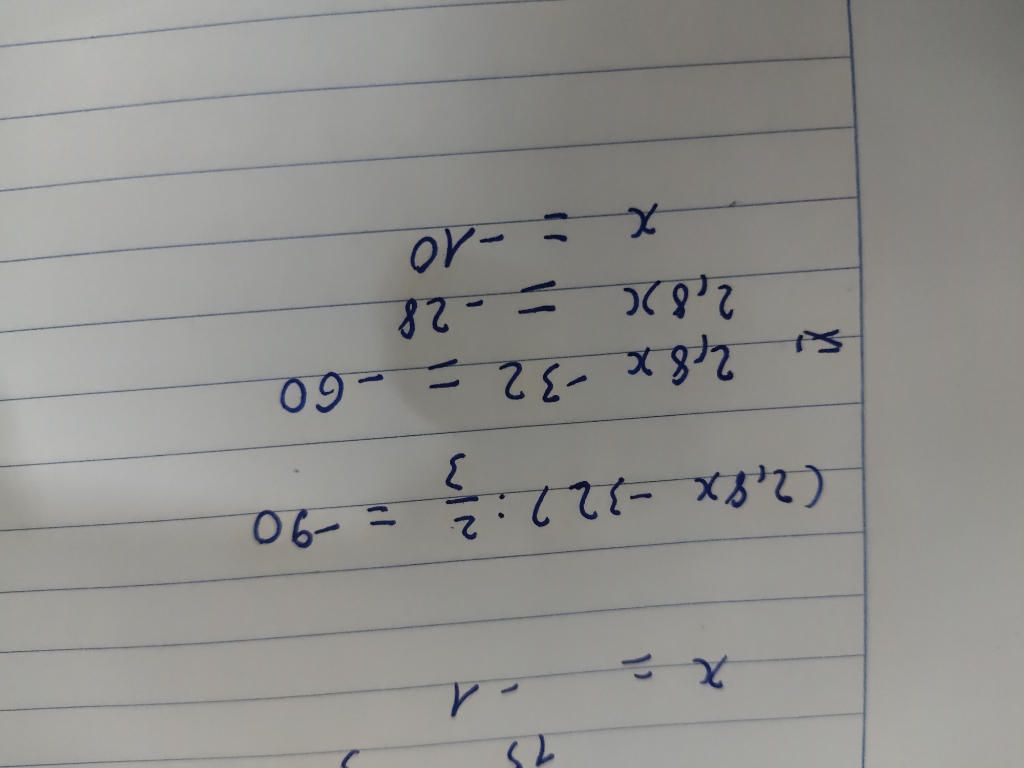 x = -1
(2,8x - 32) : 2/3 = -90
2,8x - 32 = -60
2,8x = -28
x = -10